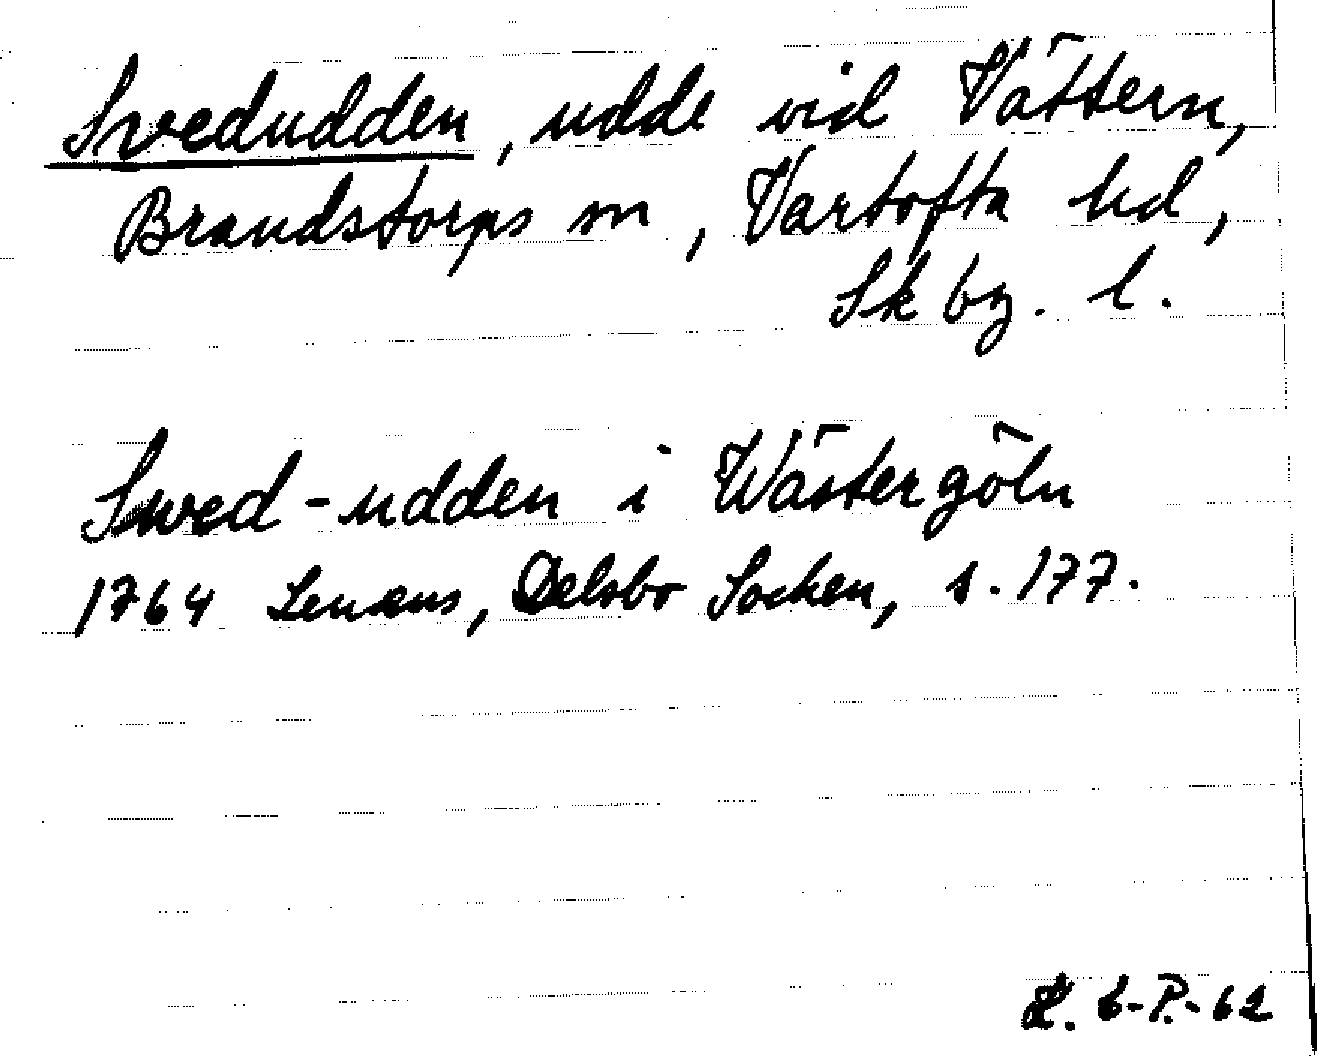 Svedudden, udde vid Vättern,
Brandstorps sn, Vartofta hd,
Skbg. l.
Swed-udden i Wästergöln
1764 Lenæus, Delsbo Socken, s. 177.
L. C-P.-62